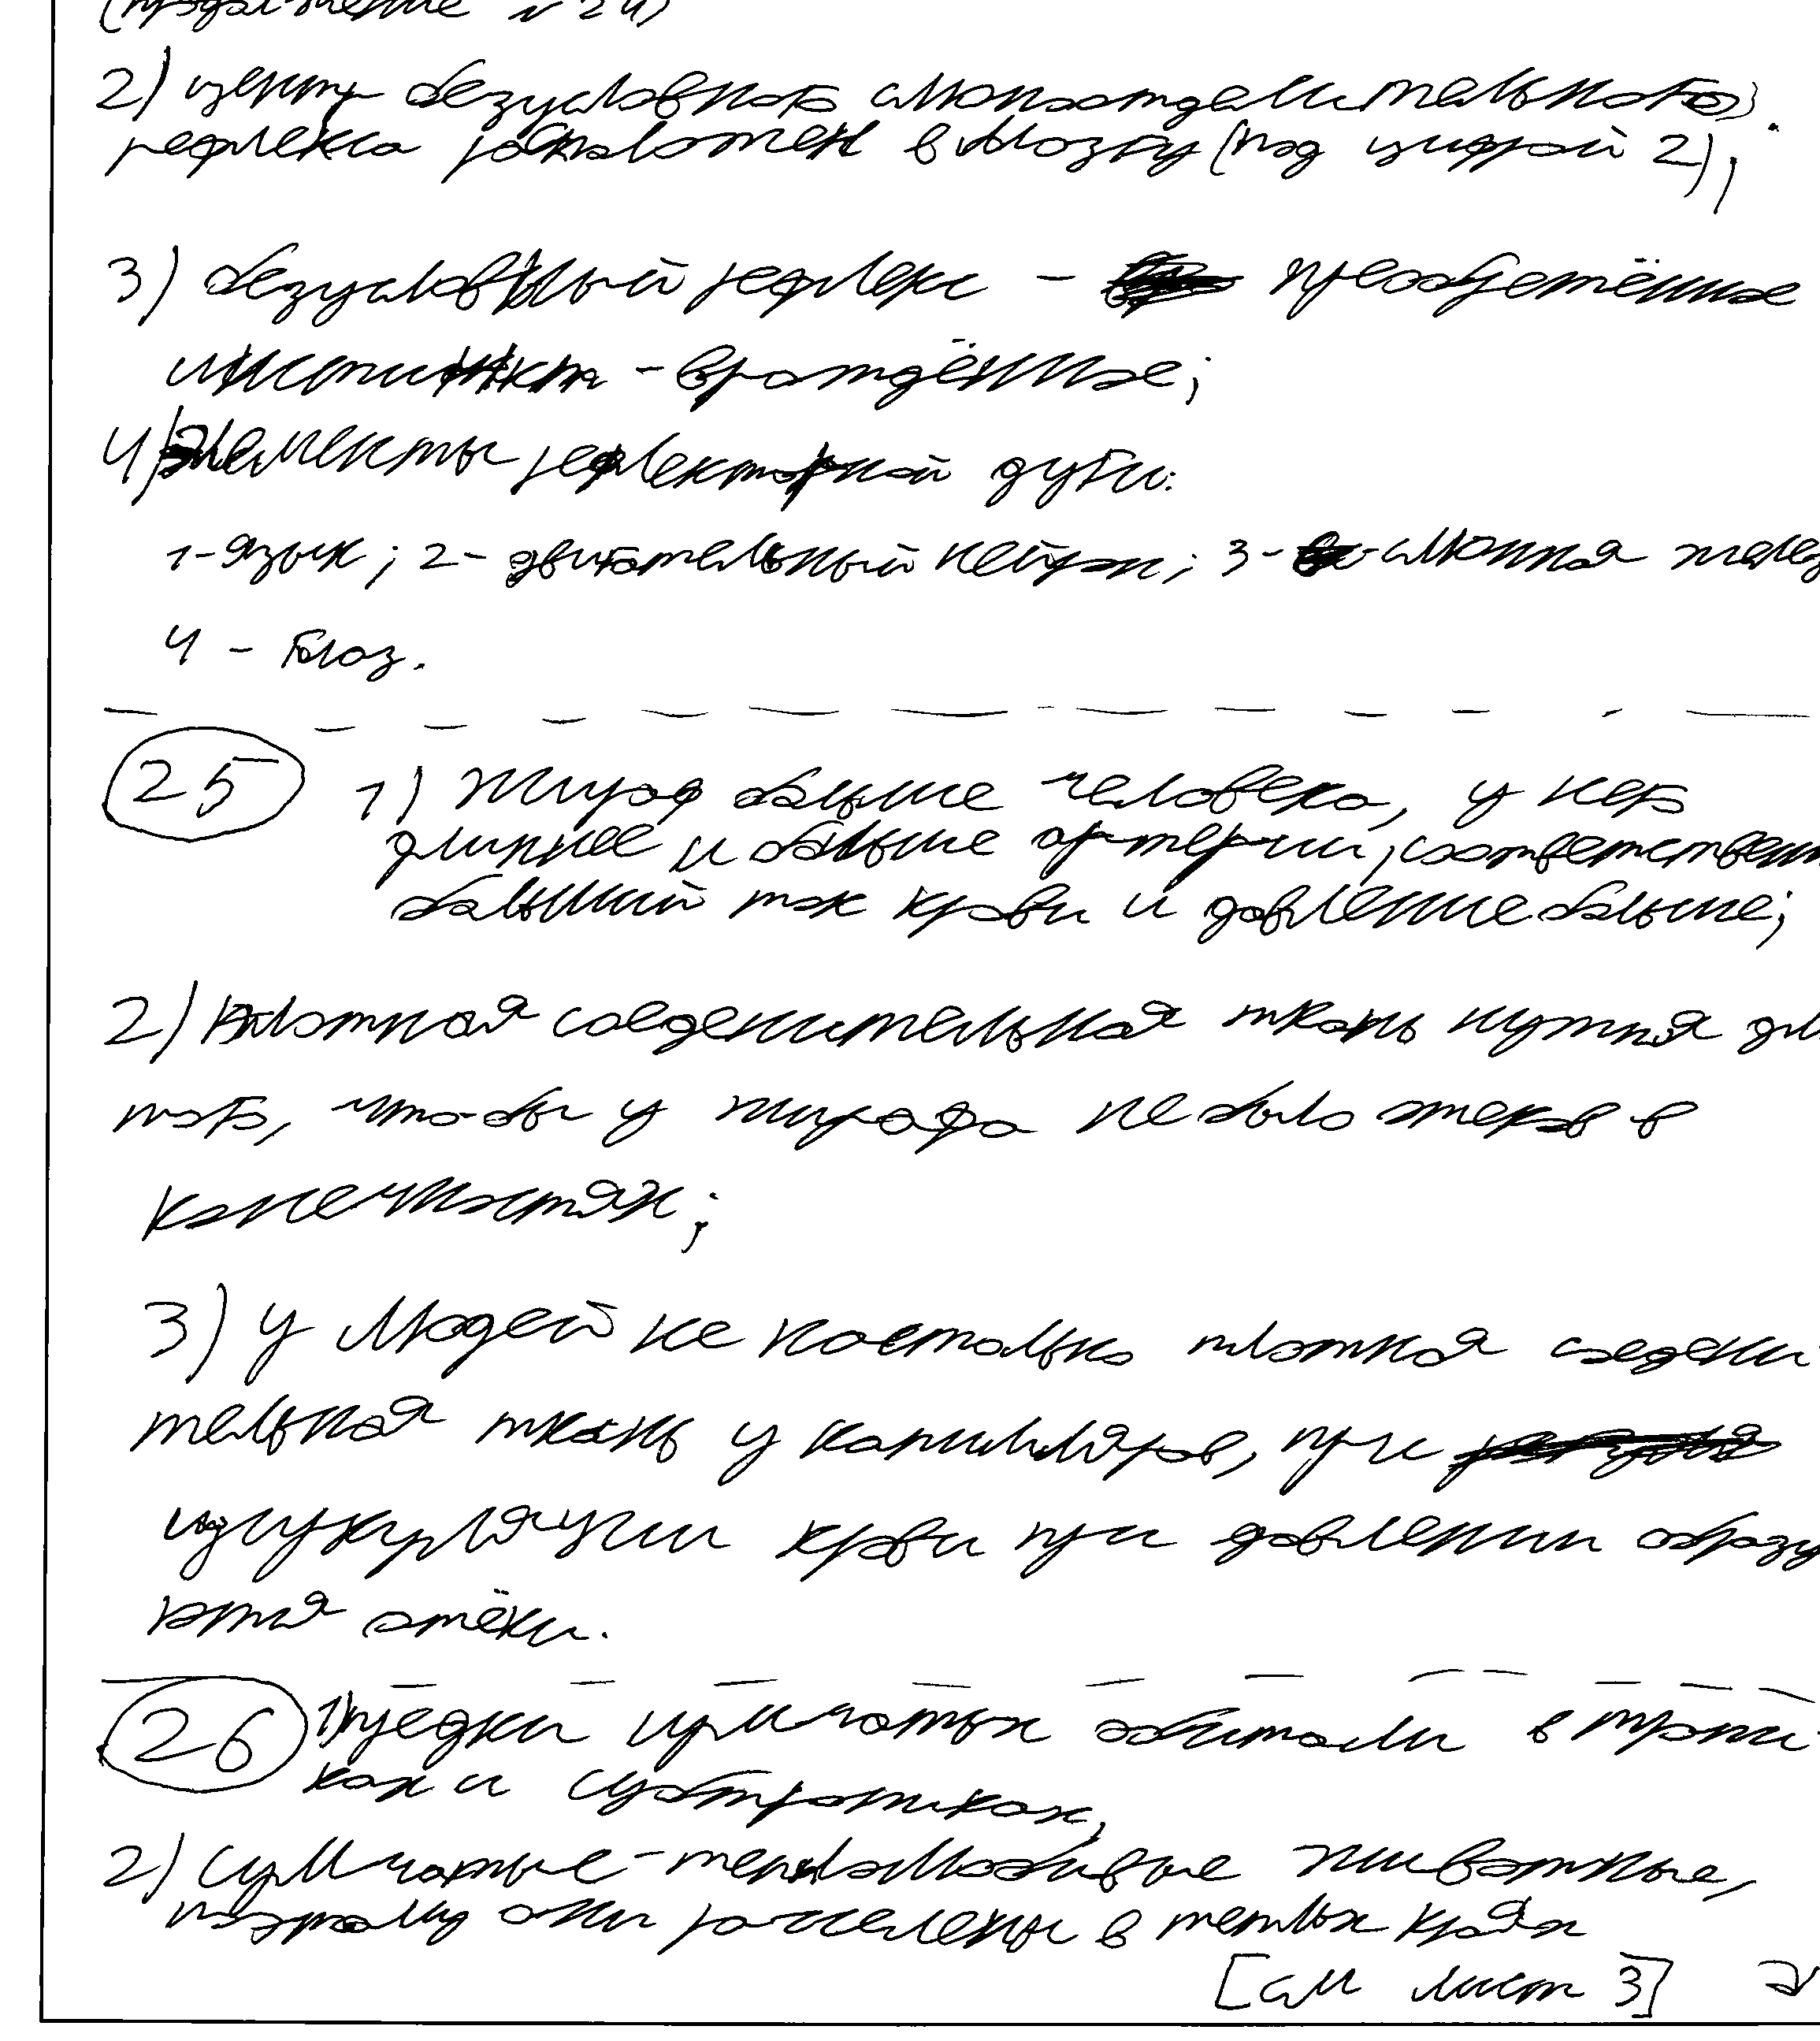 (продолжение №24)
2) центр безусловного слюноотделительного
рефлекса расположен в мозгу (под цифрой 2);
3) безусловный рефлекс - преобретённые
инстинкт - врождённые;
4) Элементы рефлекторной дуги:
1-язык; 2- двигательный нейрон; 3- слюнная желез
4 - глаз.
25 1) Жираф больше человека, у него
длиннее и больше артерии, соответственн
больший ток крови и давление больше;
2) плотная соеденительная ткань нужна дл
того, что-бы у жирафа не было отеков в
конечностях;
3) у людей не настолько плотная соедени
тельная ткань у капилляров, при
крови при давлении образу
ются отёки.
26 1) предки сумчатых обитали в тропи
ках и субтропиках,
2) Сумчатые - теплолюбивые животные,
поэтому они расселены в теплых краях
[см лист 3]